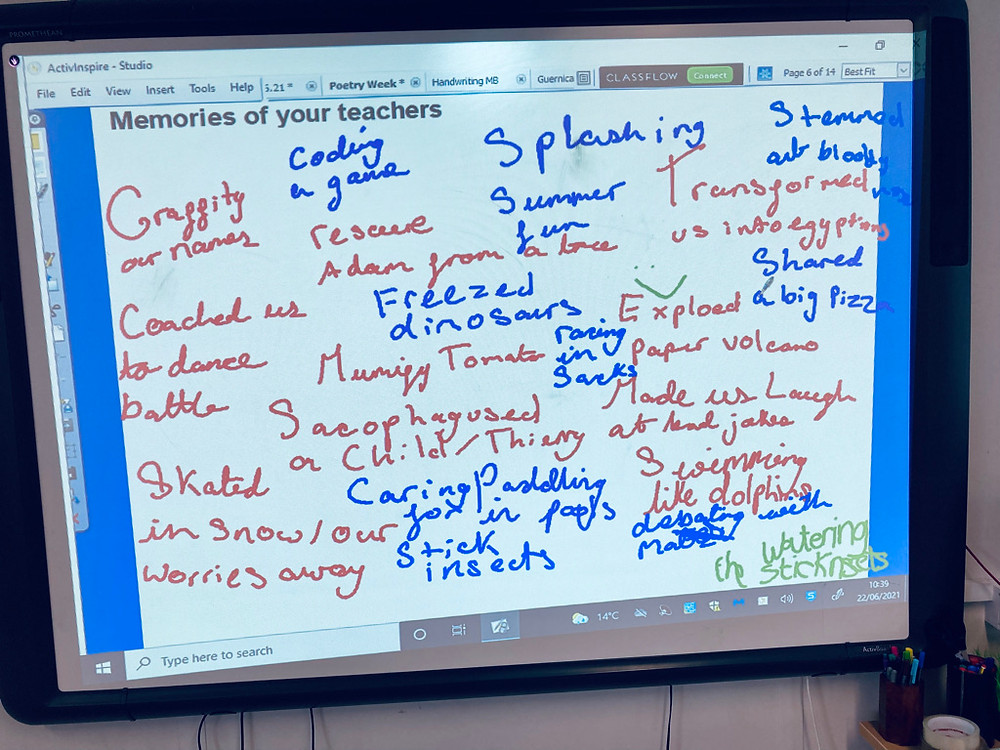 PROMETHEAN
ActivInspire - Studio
File Edit View Insert Tools Help
5.21 *
Poetry Week *
Handwriting MB
Guernica
CLASSFLOW
Connect
Page 6 of 14
Best Fit
Memories of your teachers
Coding
a game
Splashing
Summer
fun
Stemmed
art
Graffity
our names
rescue
Adam from a tree
Transformed
us into egyptians
Shared
a big Pizza
Coached us
to dance
battle
Freezed
dinosaurs
Exploed
paper volcano
Mumify Tomato
racing
in
sacks
Sacophagused
a Child/Thierry
Made us Laugh
at bad jokes
Skated
in snow/our
worries away
Caring/Paddling
for in pools
stick
insects
Swimming
like dolphins
debating with
the watering
sticknsets
10:39
22/06/2021
14°C
Type here to search